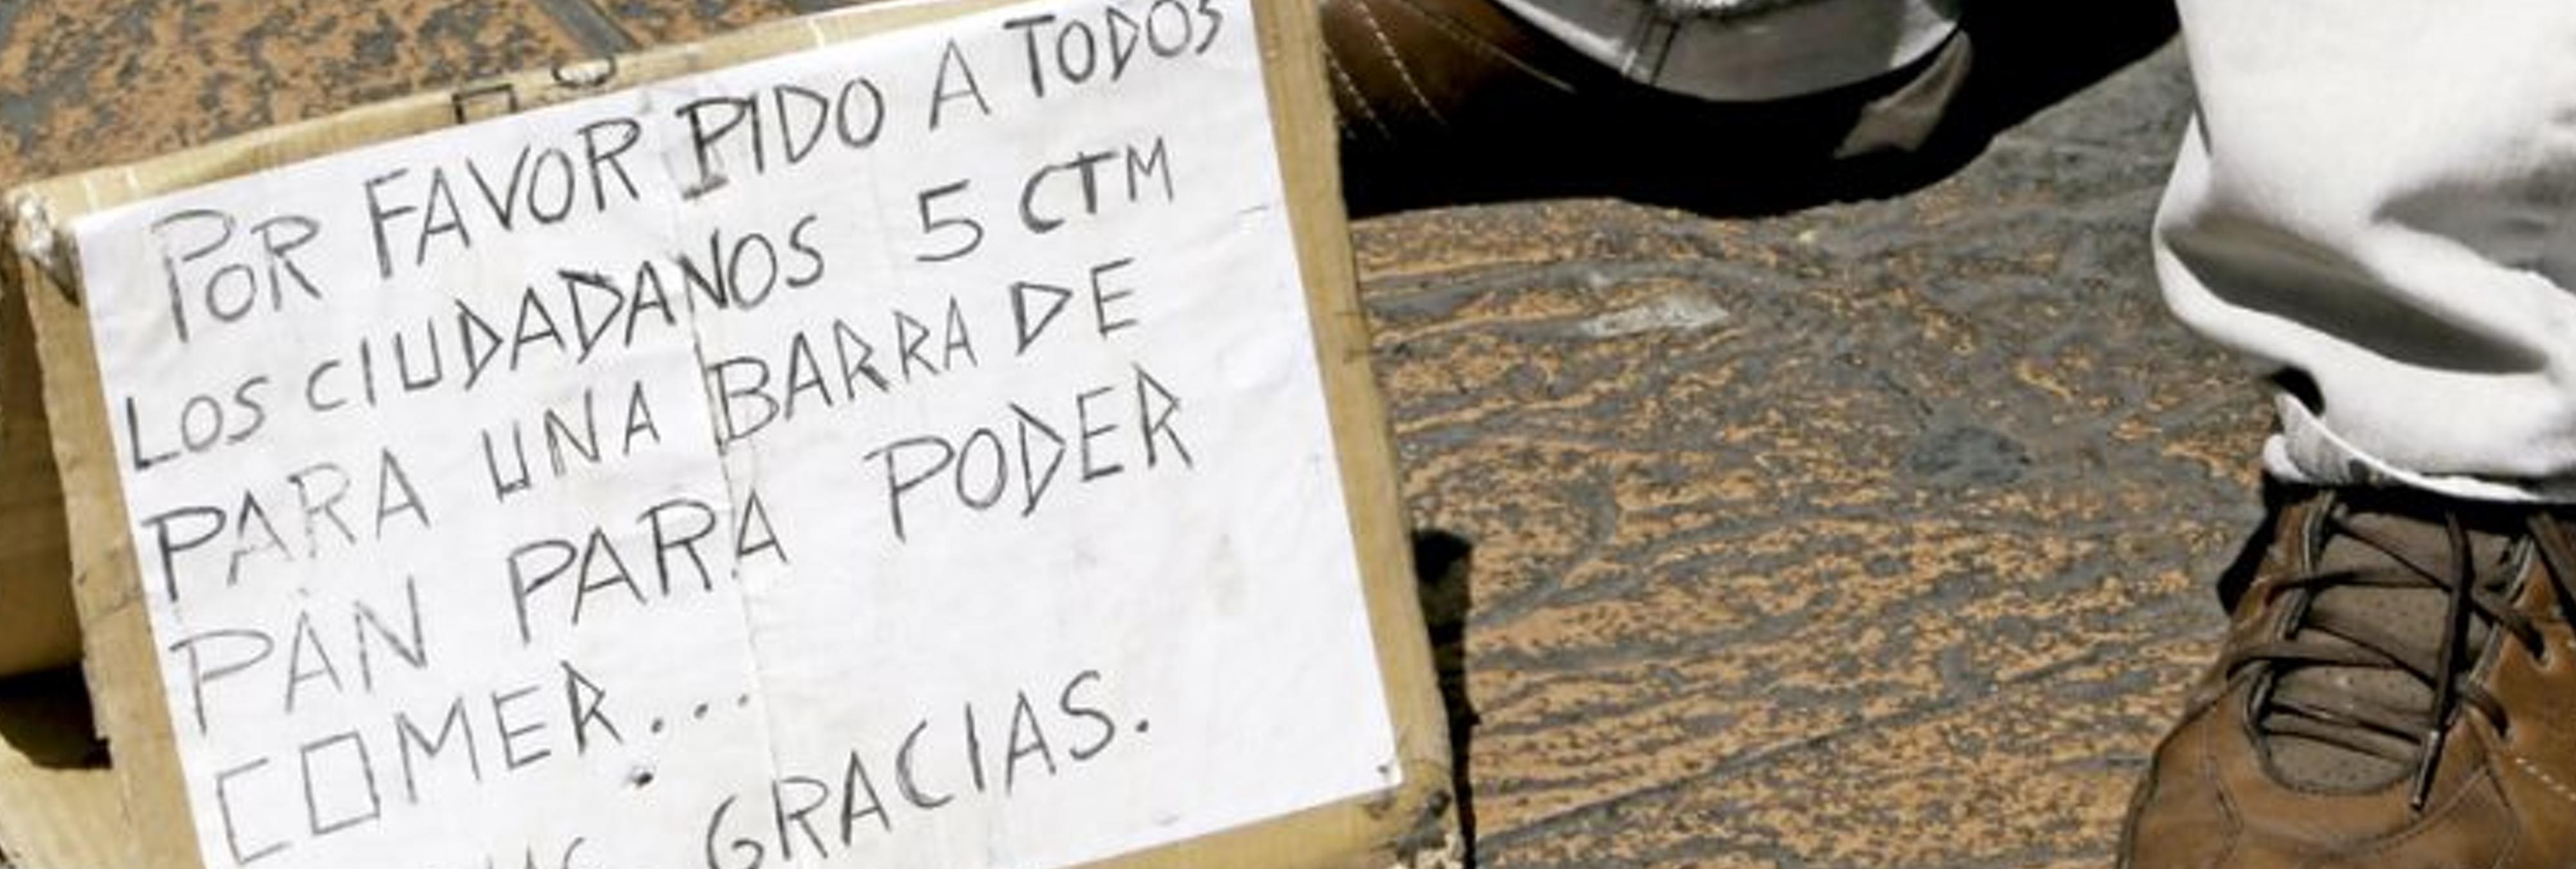 POR FAVOR PIDO A TODOS
LOS CIUDADANOS 5 CTM
PARA UNA BARRA DE
PAN PARA PODER
COMER...
GRACIAS.